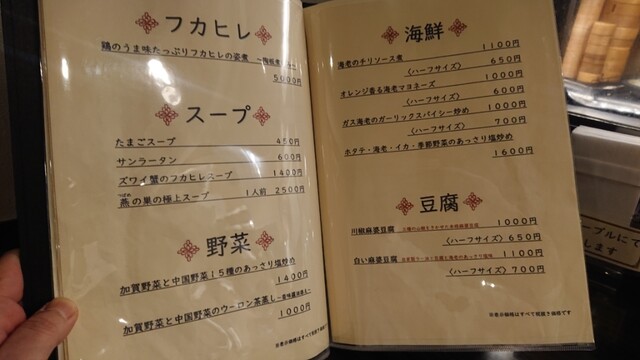 フカヒレ
鶏のうま味たっぷりフカヒレの姿煮
5000円
スープ
たまごスープ 450円
サンラータン 600円
ズワイ蟹のフカヒレスープ 1400円
燕の巣の極上スープ 1人前 2500円
野菜
加賀野菜と中国野菜15種のあっさり塩炒め
1400円
加賀野菜と中国野菜のウーロン茶蒸し
1000円
※表示価格はすべて税抜き価格です
海鮮
海老のチリソース煮 1100円
〈ハーフサイズ〉 650円
オレンジ香る海老マヨネーズ 1000円
〈ハーフサイズ〉 600円
ガス海老のガーリックスパイシー炒め 1000円
〈ハーフサイズ〉 700円
ホタテ・海老・イカ・季節野菜のあっさり塩炒め
1600円
豆腐
川椒麻婆豆腐 1000円
〈ハーフサイズ〉 650円
白い麻婆豆腐 1100円
〈ハーフサイズ〉 700円
※表示価格はすべて税抜き価格です
ーブルにて
します